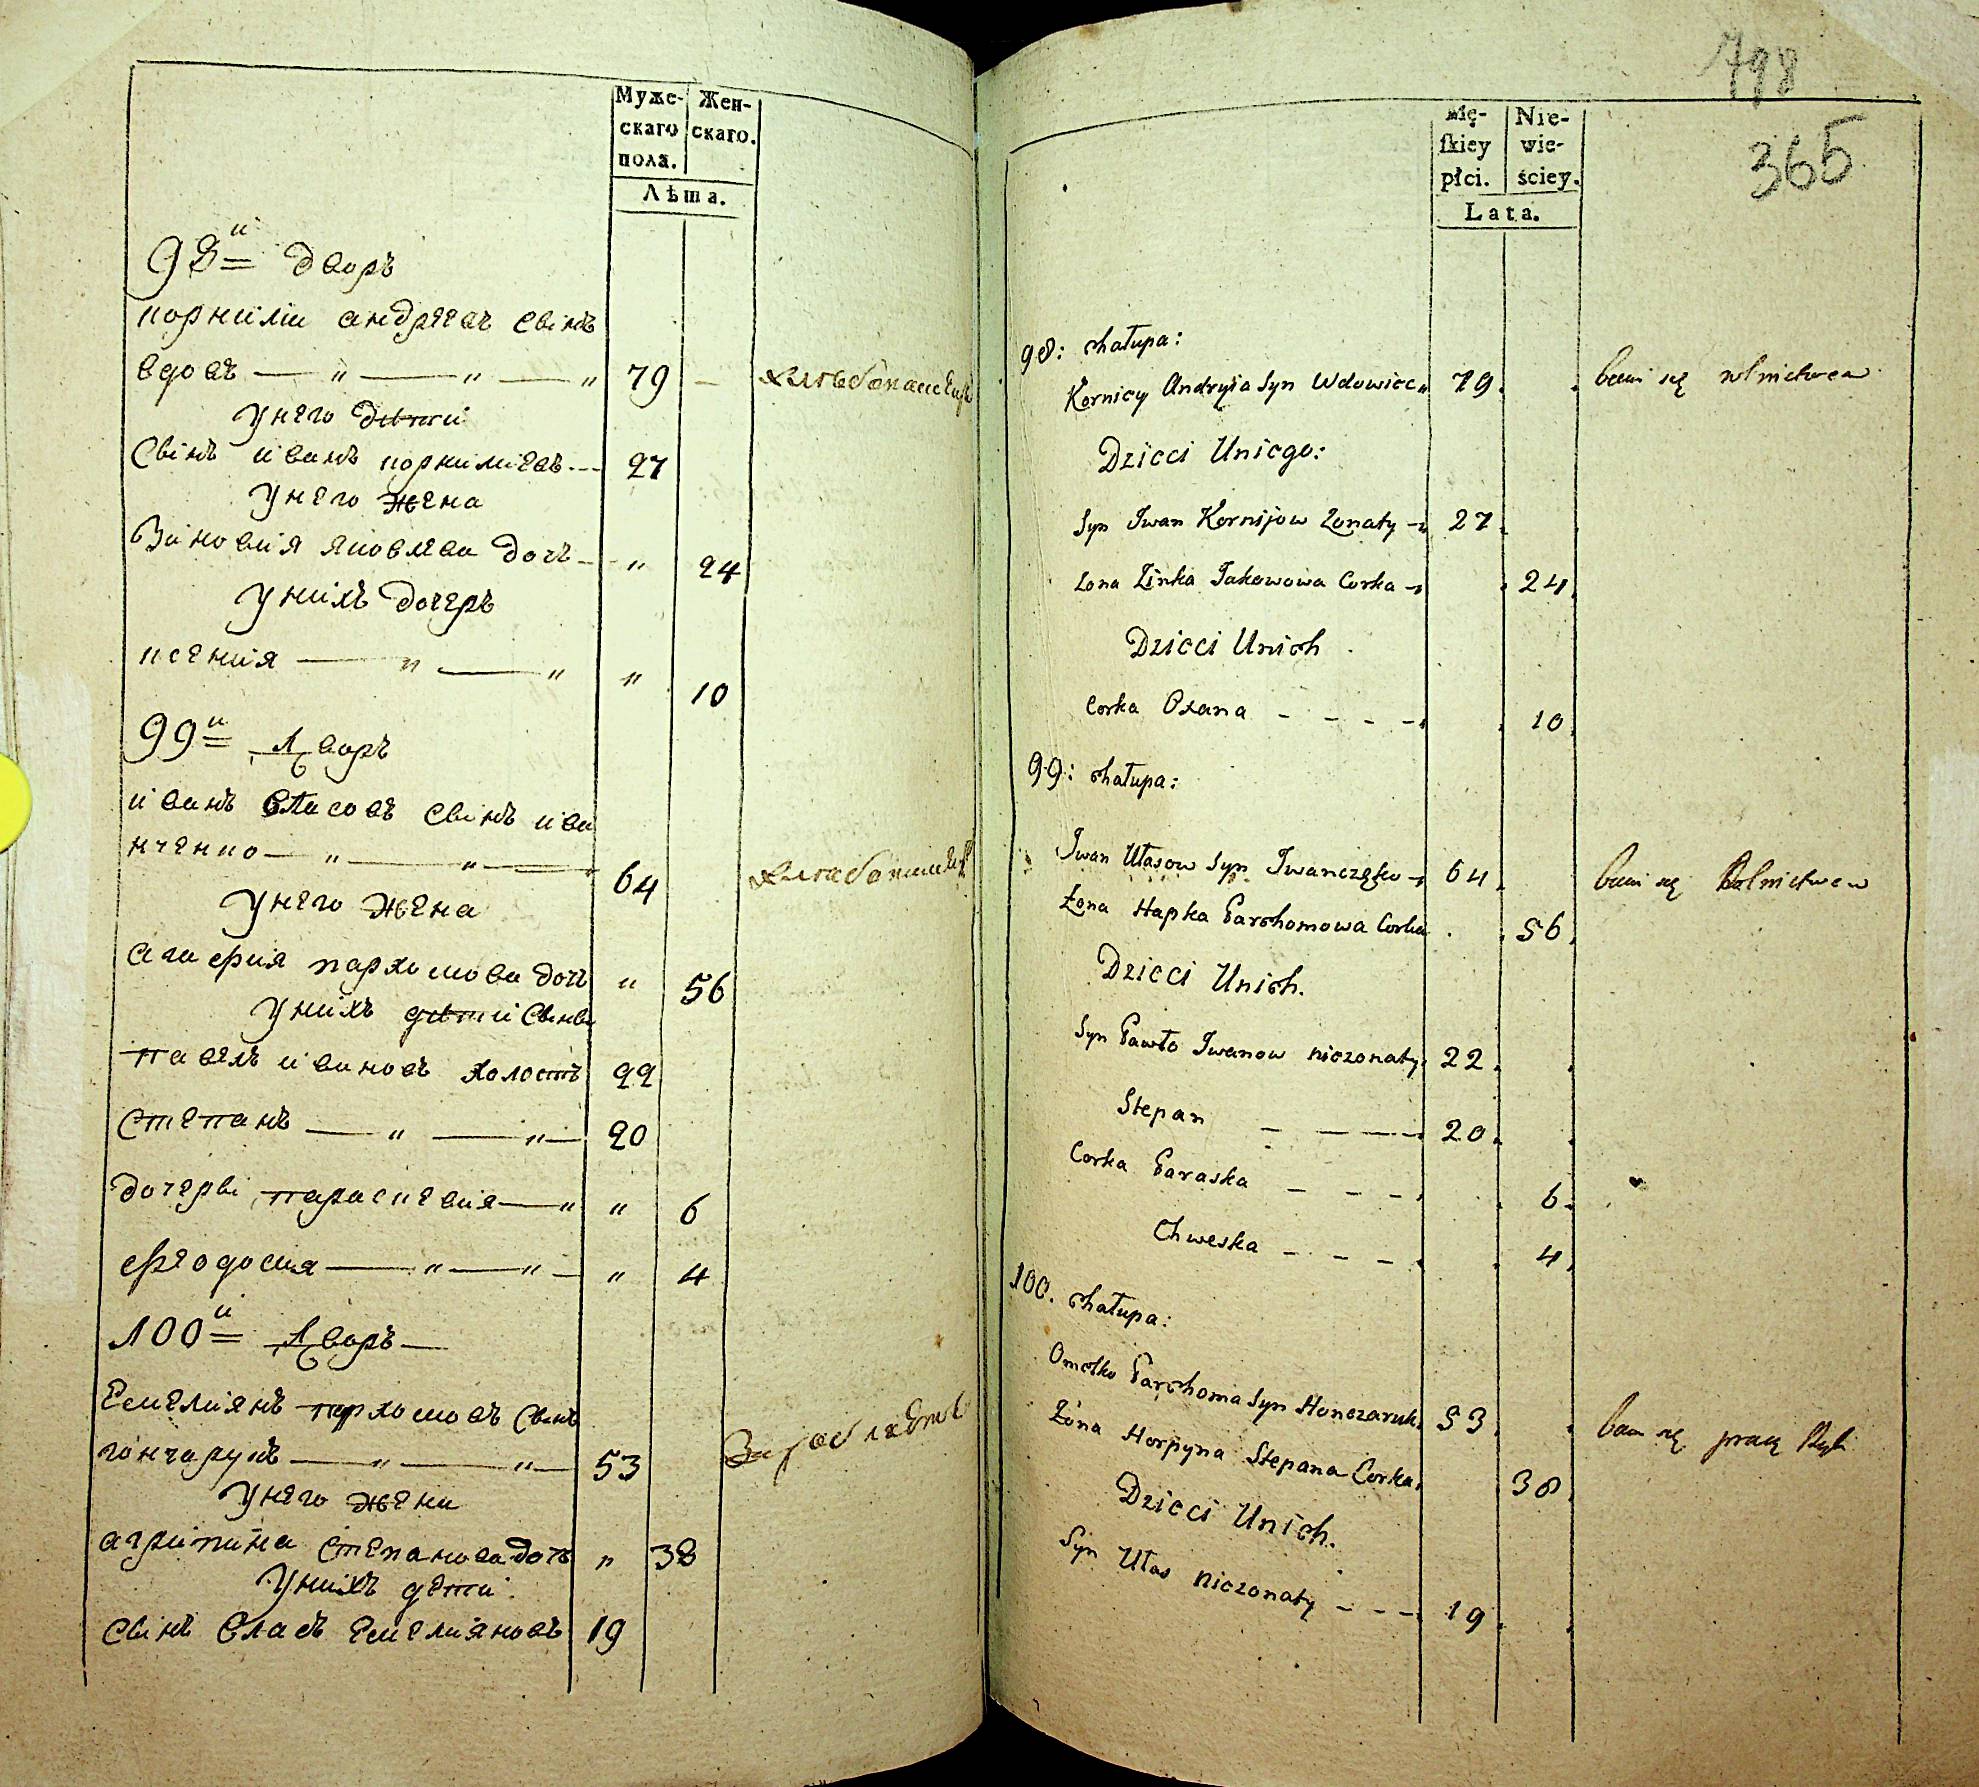 Муже-
скаго
пола.
Жен-
скаго.
Лѣта.
98й дворъ
корнилій андрѣевъ синъ
вдовъ — " — " — " 79 — хлебопашецъ
У него дѣти
Синъ иванъ корнилиевъ --- 27
У него жена
Зиновия яковлева дочь - " 24
У нихъ дочеръ
ксения — " — " " 10
99й Дворъ
иванъ власовъ синъ ива
нченко — " — " — 64 хлебопашецъ
У него жена
агафия пархомова дочь " 56
У нихъ дѣти Синви
павелъ ивановъ холостъ 22
степанъ — " — " — 20
дочерві параскевия — " " 6
феодосия — " — " — " 4
100й Дворъ —
Емелиянъ пархомовъ Синъ
гончарукъ — " — " — 53
У него жена
агрипина степанова дочь " 38
У нихъ дети
синъ власъ Емелияновъ 19
798
365
Mę-
skiey
płci.
Nie-
wie-
ściey.
Lata.
98: chałupa:
Kornicy Andryia Syn Wdowiec 79. bawi się rolnictwem
Dzieci Uniego:
Syn Iwan Kornijow Zonaty - 27.
Zona Zinka Jakowowa Corka - 24.
Dzieci Unich
Corka Oxana - - - - 10.
99: chałupa:
Iwan Ułasow Syn Iwanczęko - 64. bawi się Rolnictwem
Żona Hapka Parchomowa Corka . 56.
Dzieci Unich.
Syn Pawło Iwanow niezonaty 22.
Stepan — — — 20.
Corka Paraska - - - - 6.
Chweska - - - - 4.
100. chałupa:
Omelko Parchoma Syn Honczaruk 53. bawi się pracą Rąk
Żona Horpyna Stepana Corka 38.
Dzieci Unich.
Syn Ułas Niezonaty - - - 19.